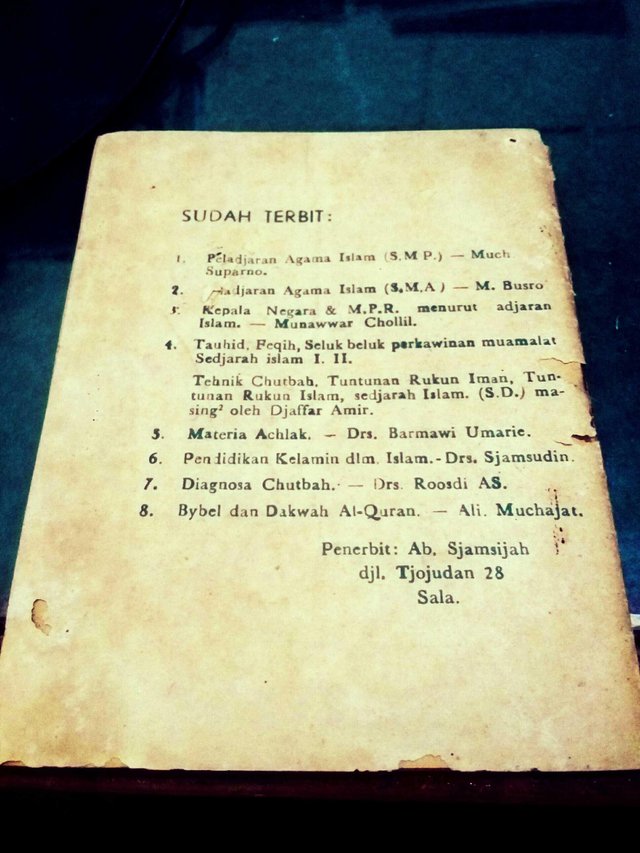 SUDAH TERBIT:
1. Peladjaran Agama Islam (S.M P.) — Much.
Suparno.
2. Peladjaran Agama Islam (S.M.A) — M. Busro
3. Kepala Negara & M.P.R. menurut adjaran
Islam. — Munawwar Chollil.
4. Tauhid, Feqih, Seluk beluk perkawinan muamalat
Sedjarah islam I. II.
Tehnik Chutbah, Tuntunan Rukun Iman, Tun-
tunan Rukun Islam, sedjarah Islam. (S.D.) ma-
sing² oleh Djaffar Amir.
5. Materia Achlak. — Drs. Barmawi Umarie.
6. Pendidikan Kelamin dlm. Islam.- Drs. Sjamsudin.
7. Diagnosa Chutbah. — Drs. Roosdi AS.
8. Bybel dan Dakwah Al-Quran. — Ali. Muchajat.
Penerbit: Ab. Sjamsijah
djl. Tjojudan 28
Sala.